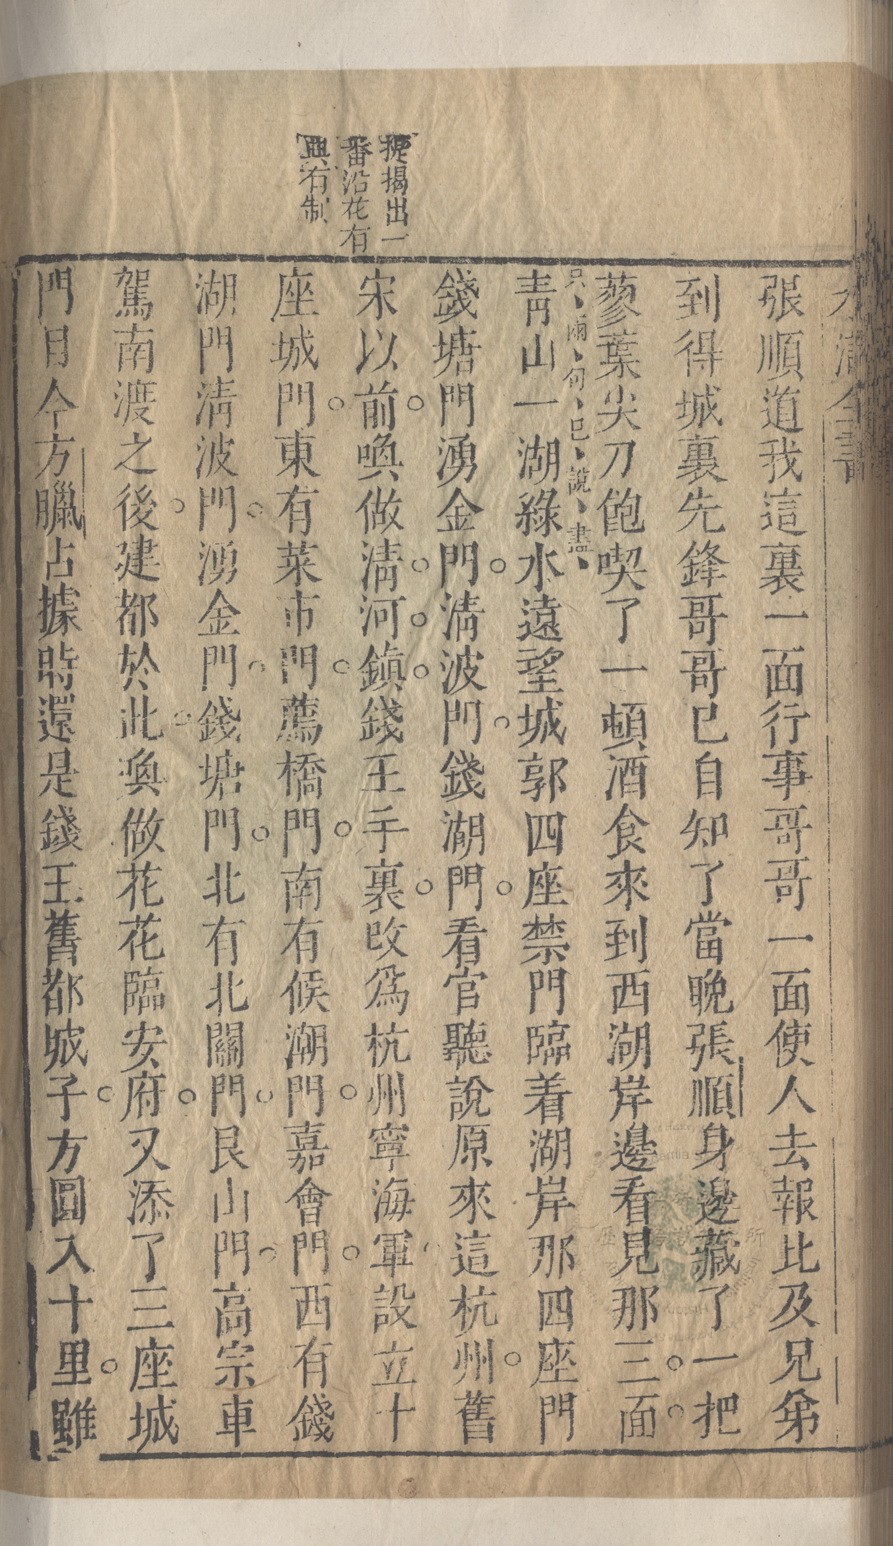 水滸全書
張順道我這裏一面行事哥哥一面使人去報比及兄弟
到得城裏先鋒哥哥已自知了當晚張順身邊藏了一把
蓼葉尖刀飽喫了一頓酒食來到西湖岸邊看見那三面
只兩句已說盡
青山一湖綠水遠望城郭四座禁門臨着湖岸那四座門
錢塘門湧金門清波門錢湖門看官聽說原來這杭州舊
提揭出一
番沿花有
興有制
宋以前喚做清河鎮錢王手裏改爲杭州寧海軍設立十
座城門東有菜市門薦橋門南有候潮門嘉會門西有錢
湖門清波門湧金門錢塘門北有北關門艮山門高宗車
駕南渡之後建都於此喚做花花臨安府又添了三座城
門目今方臘占據時還是錢王舊都城子方圓八十里雖